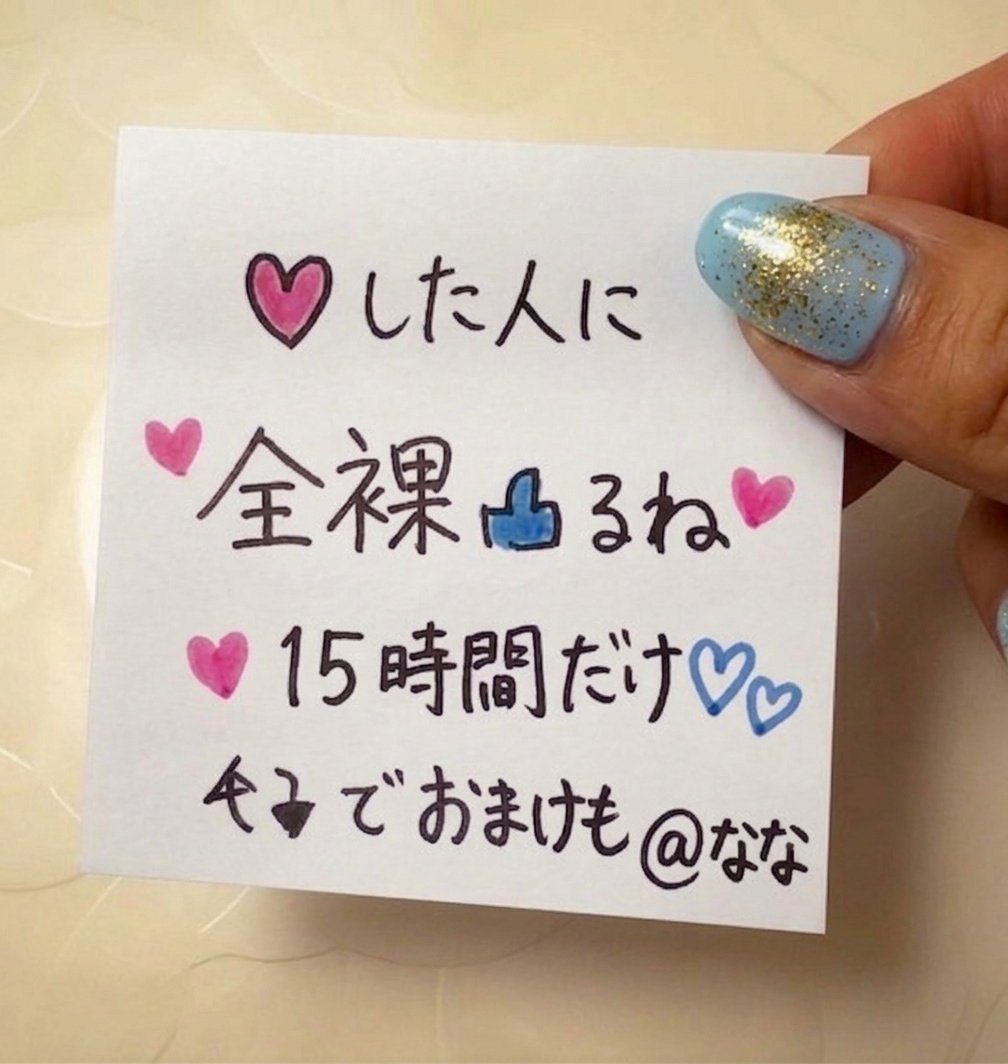 ♡した人に
全裸👍るね
15時間だけ♡♡
でおまけも @なな